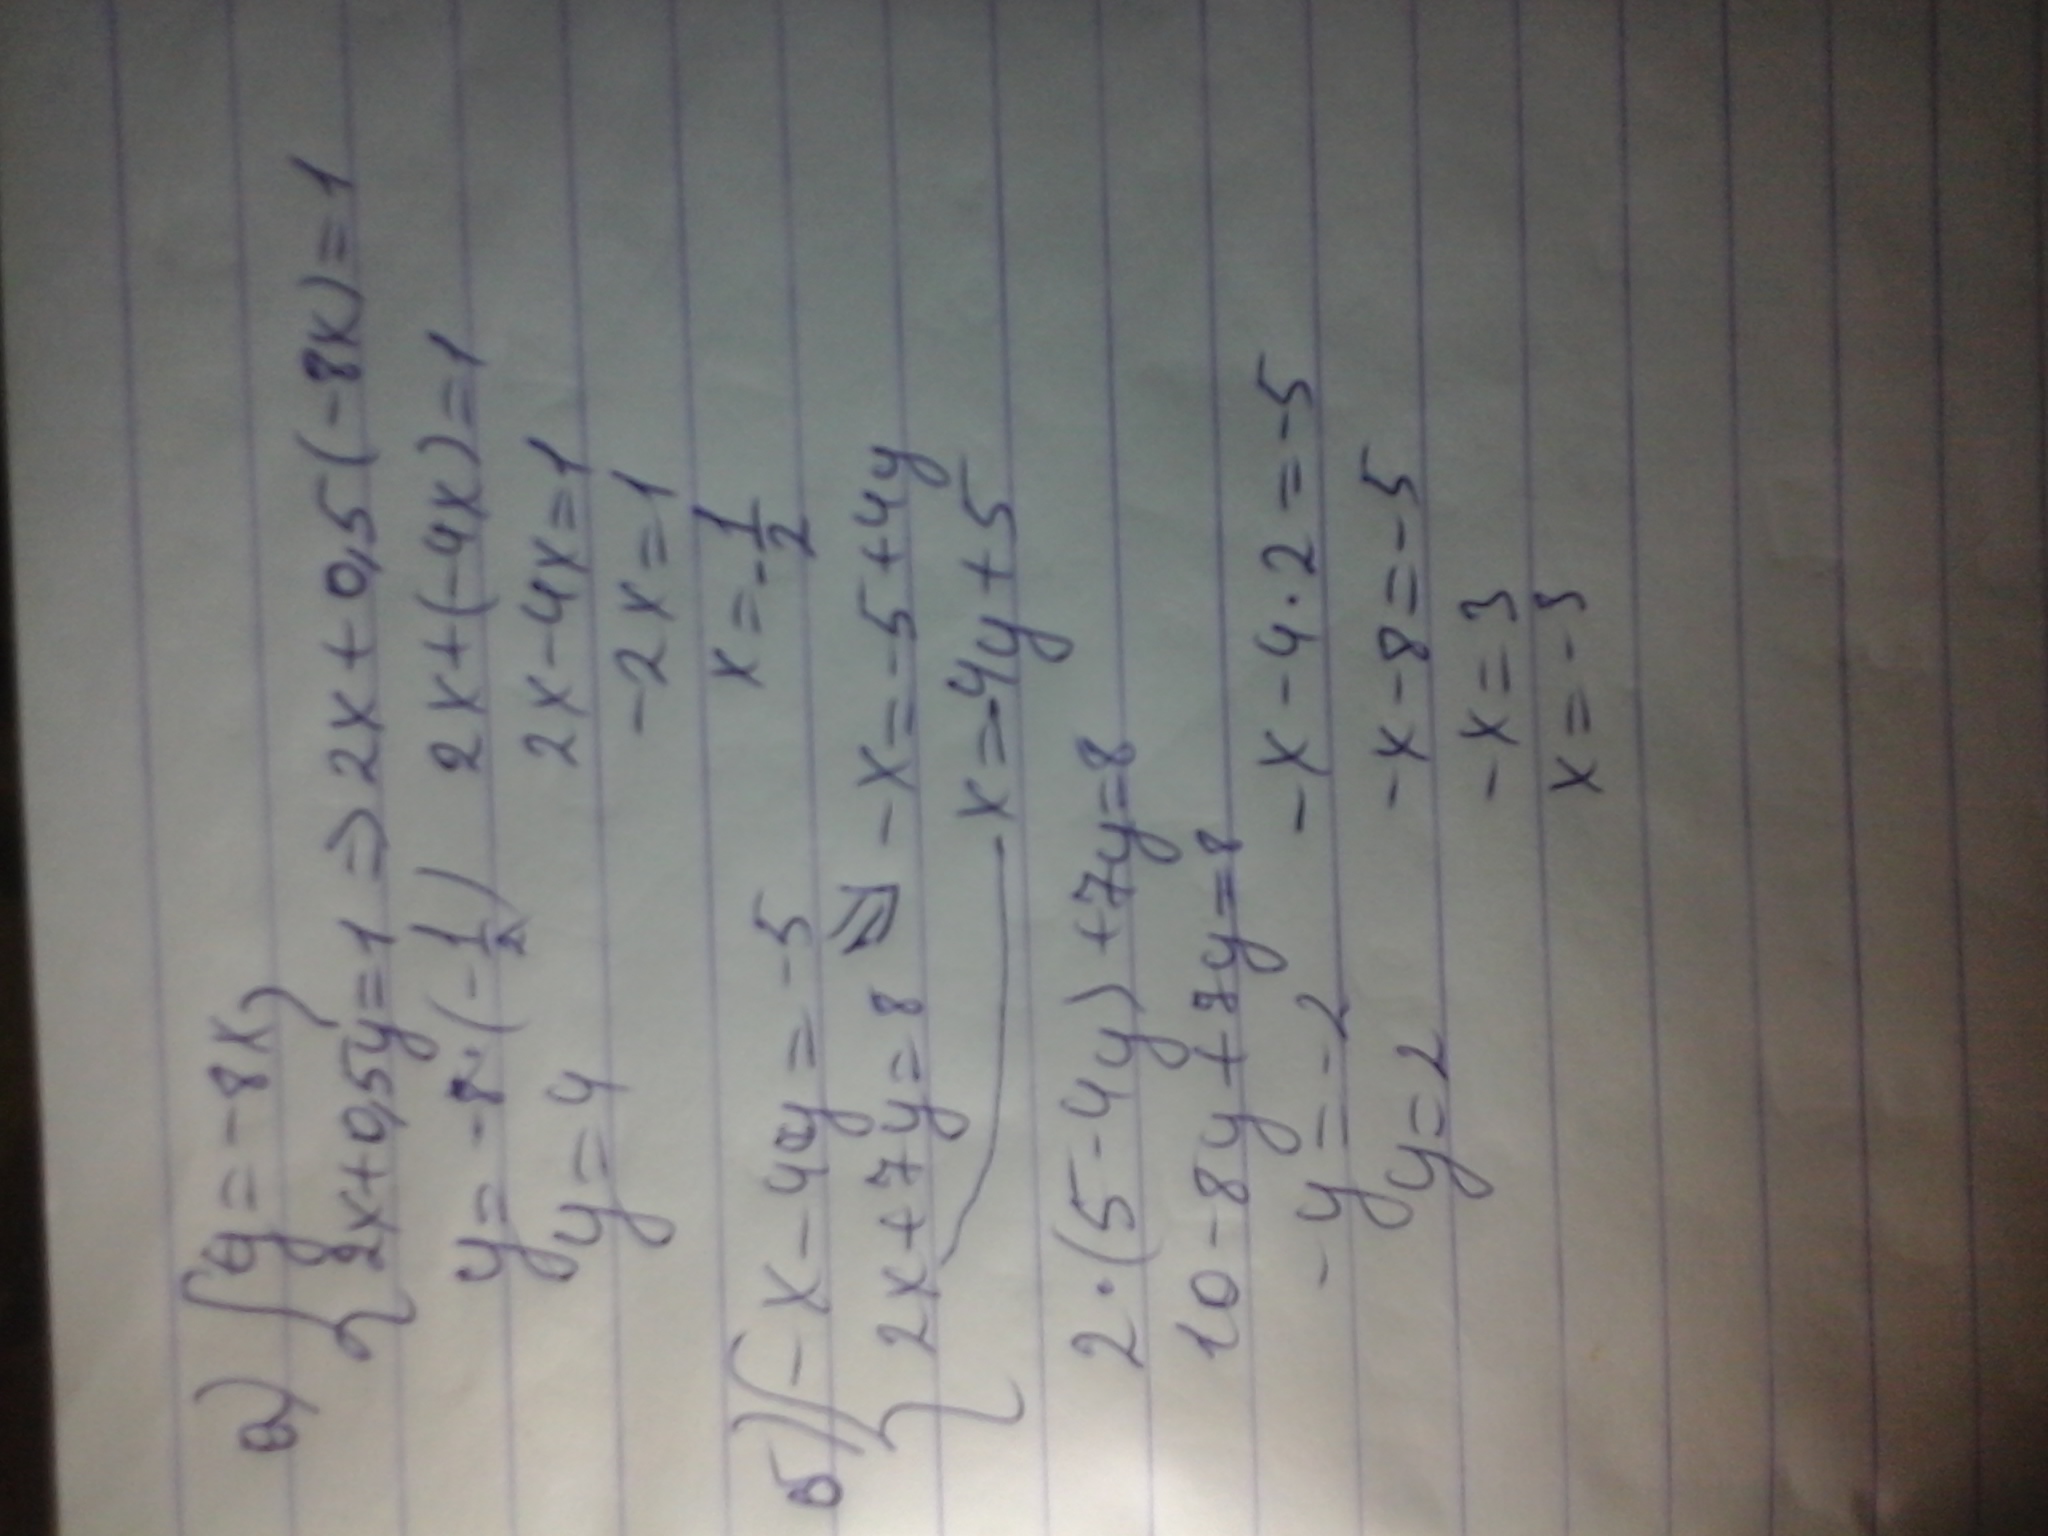 а) { y = -8x,
2x + 0,5y = 1 => 2x + 0,5(-8x) = 1
y = -8·(-1/2) 2x + (-4x) = 1
y = 4 2x - 4x = 1
-2x = 1
x = -1/2
б) { -x - 4y = -5
2x + 7y = 8 => -x = -5 + 4y
x = -4y + 5
2·(5 - 4y) + 7y = 8
10 - 8y + 8y = 8
-y = -2 -x - 4·2 = -5
y = 2 -x - 8 = -5
-x = 3
x = -3